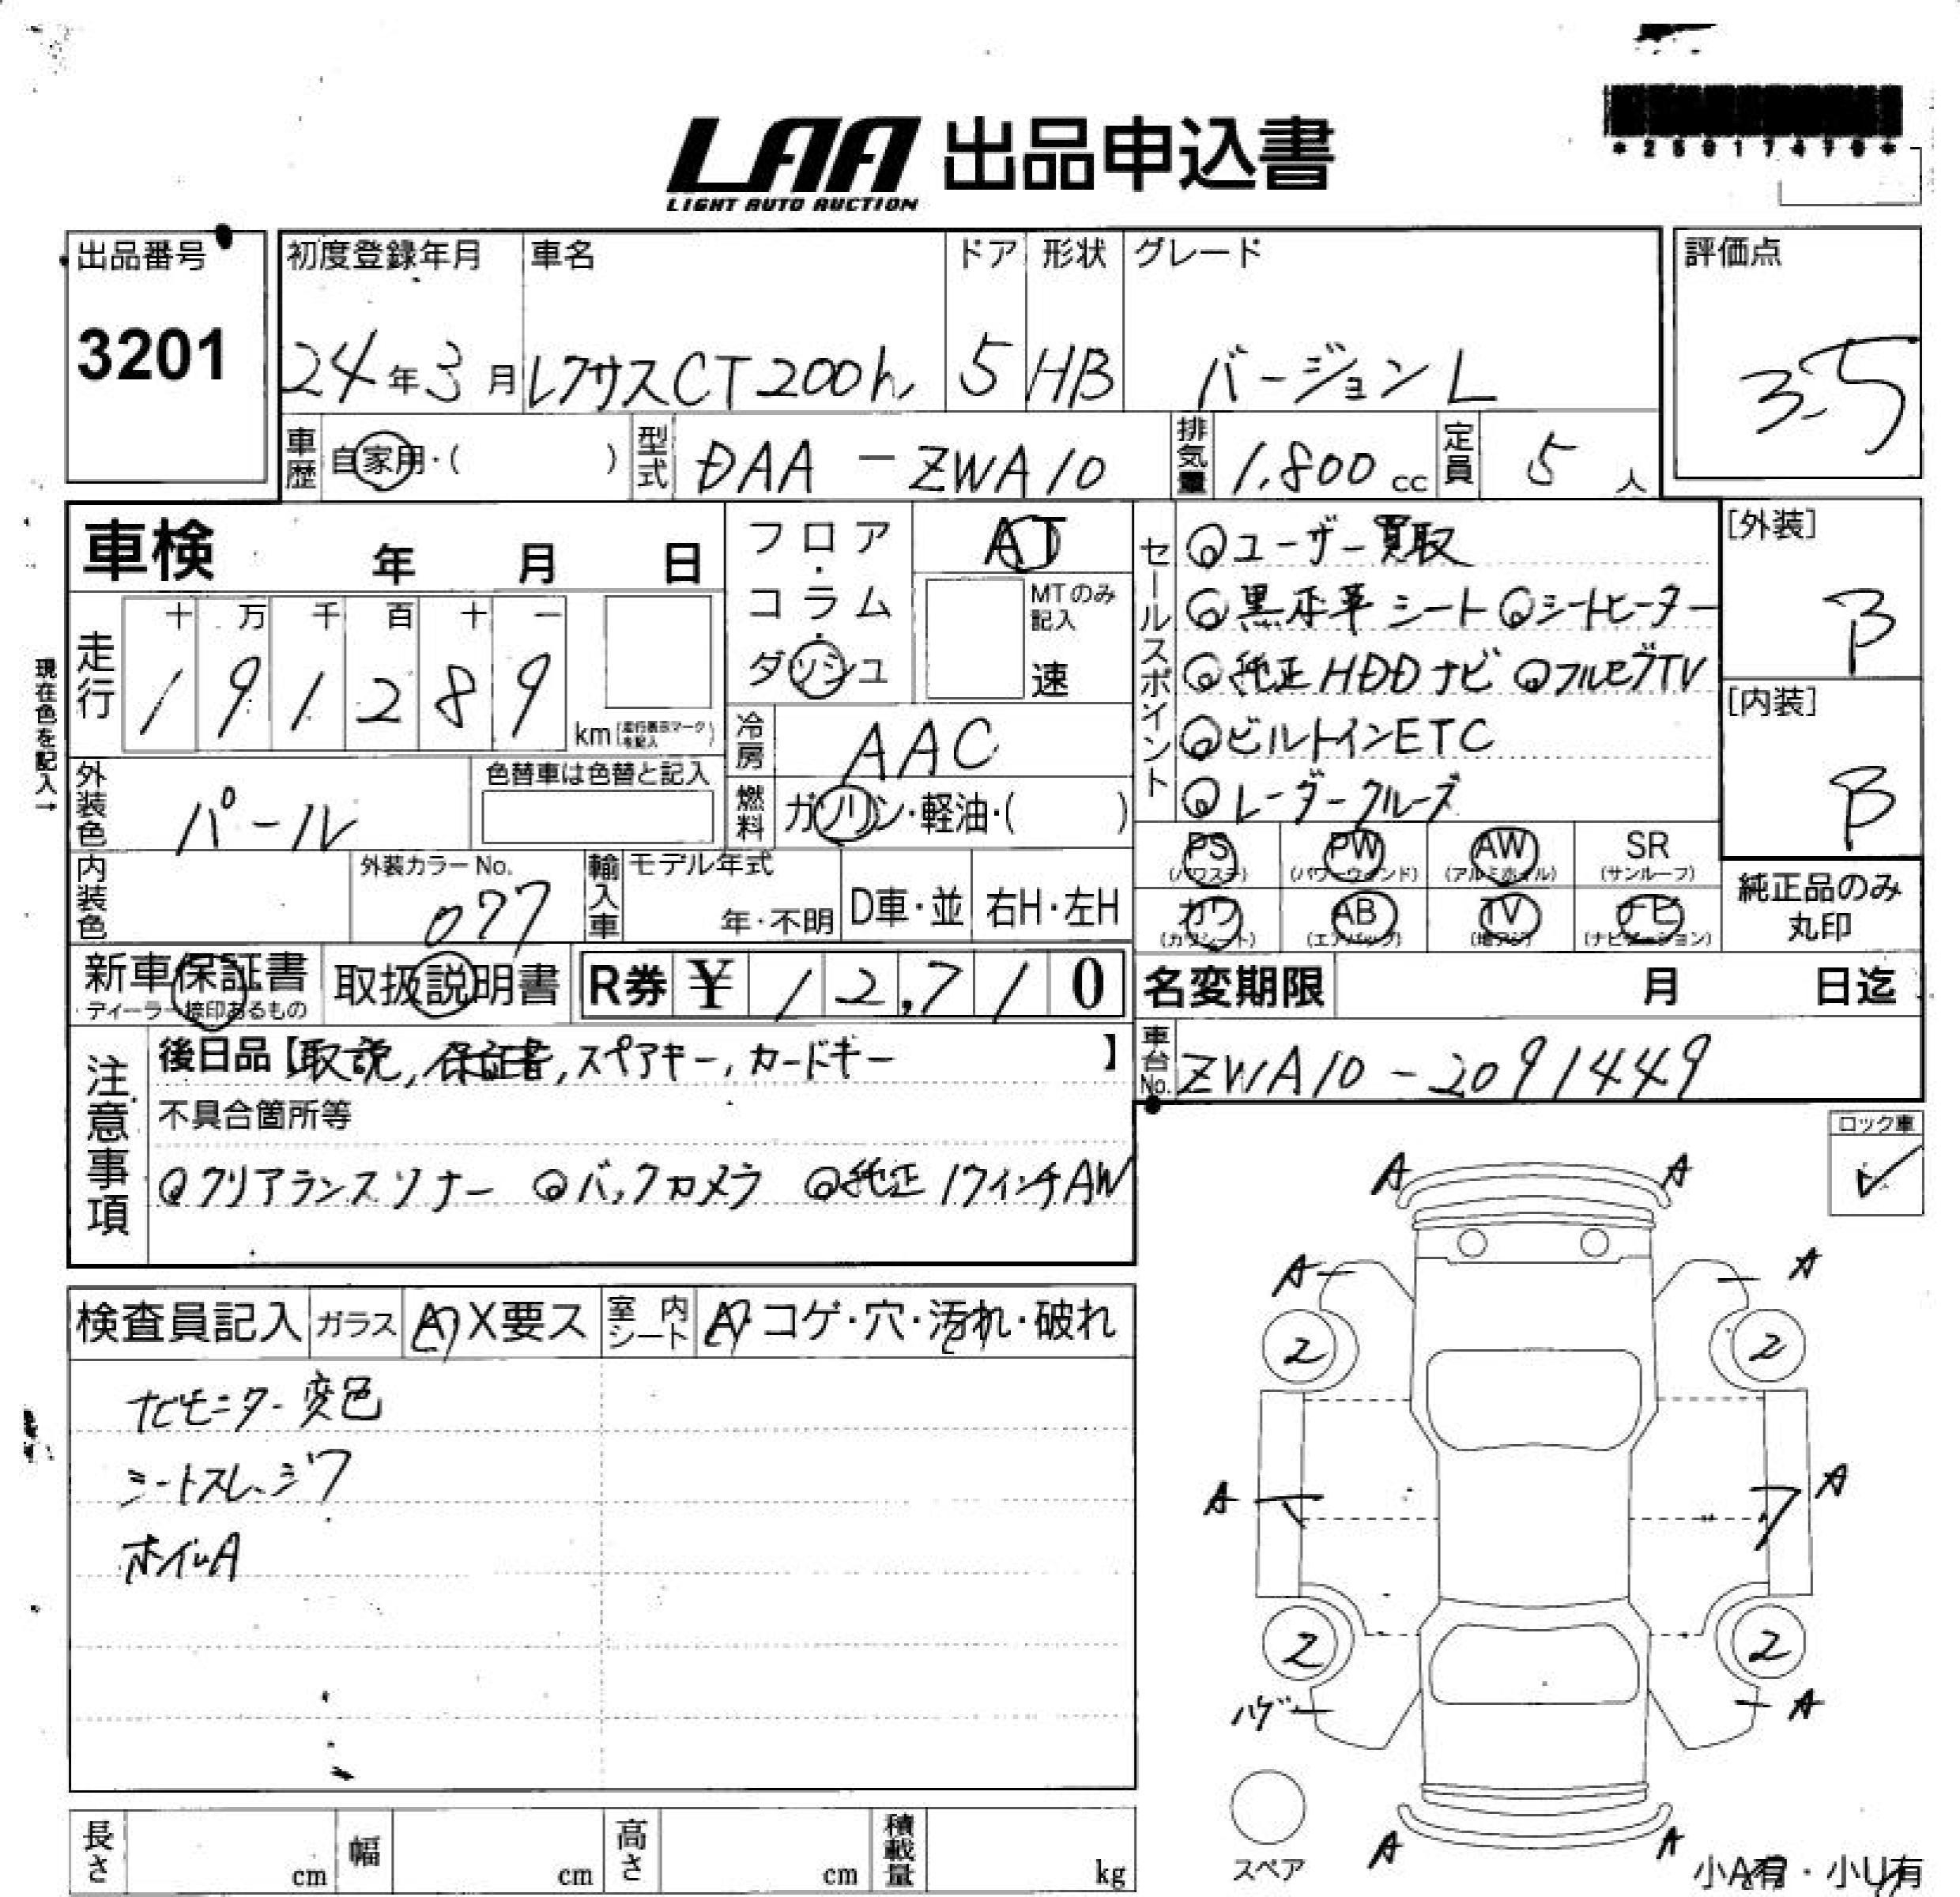 LAA 出品申込書
LIGHT AUTO AUCTION
*25017470*
出品番号
3201
初度登録年月 車名 ドア 形状 グレード
24年3月 レクサスCT200h 5 HB バージョンL
評価点
3.5
車歴 自家用・( ) 型式 DAA-ZWA10 排気量 1,800cc 定員 5人
車検 年 月 日
フロア・コラム・ダッシュ
AT
MTのみ記入
速
セールスポイント
◎ユーザー買取
◎黒本革シート ◎シートヒーター
◎純正HDDナビ ◎フルセグTV
◎ビルトインETC
◎レーダークルーズ
[外装]
B
[内装]
B
現在色を記入→
走行 十 万 千 百 十 一
1 9 1 2 8 9 km
(走行表示マークを記入)
冷房 AAC
外装色 パール 色替車は色替と記入
燃料 ガソリン・軽油・( )
内装色 外装カラーNo. 077
輸入車 モデル年式 年・不明 D車・並 右H・左H
PS (パワステ) PW (パワーウインド) AW (アルミホイル) SR (サンルーフ)
カワ (カワシート) AB (エアバッグ) TV (地デジ) ナビ (ナビゲーション)
純正品のみ丸印
新車保証書 取扱説明書 R券 ¥ 12,710
ディーラー捺印あるもの
名変期限 月 日迄
車台No. ZWA10-2091449
注意事項
後日品【取説,保証書,スペアキー,カードキー】
不具合箇所等
◎クリアランスソナー ◎バックカメラ ◎純正17インチAW
ロック車
✓
検査員記入 ガラス A X要ス 室内シート A コゲ・穴・汚れ・破れ
ナビモニター変色
シートスレ、シワ
ホイルA
A A
A A
2 2
A A
2 2
ハゲ A
スペア
A A
小A有・小U有
長さ cm 幅 cm 高さ cm 積載量 kg